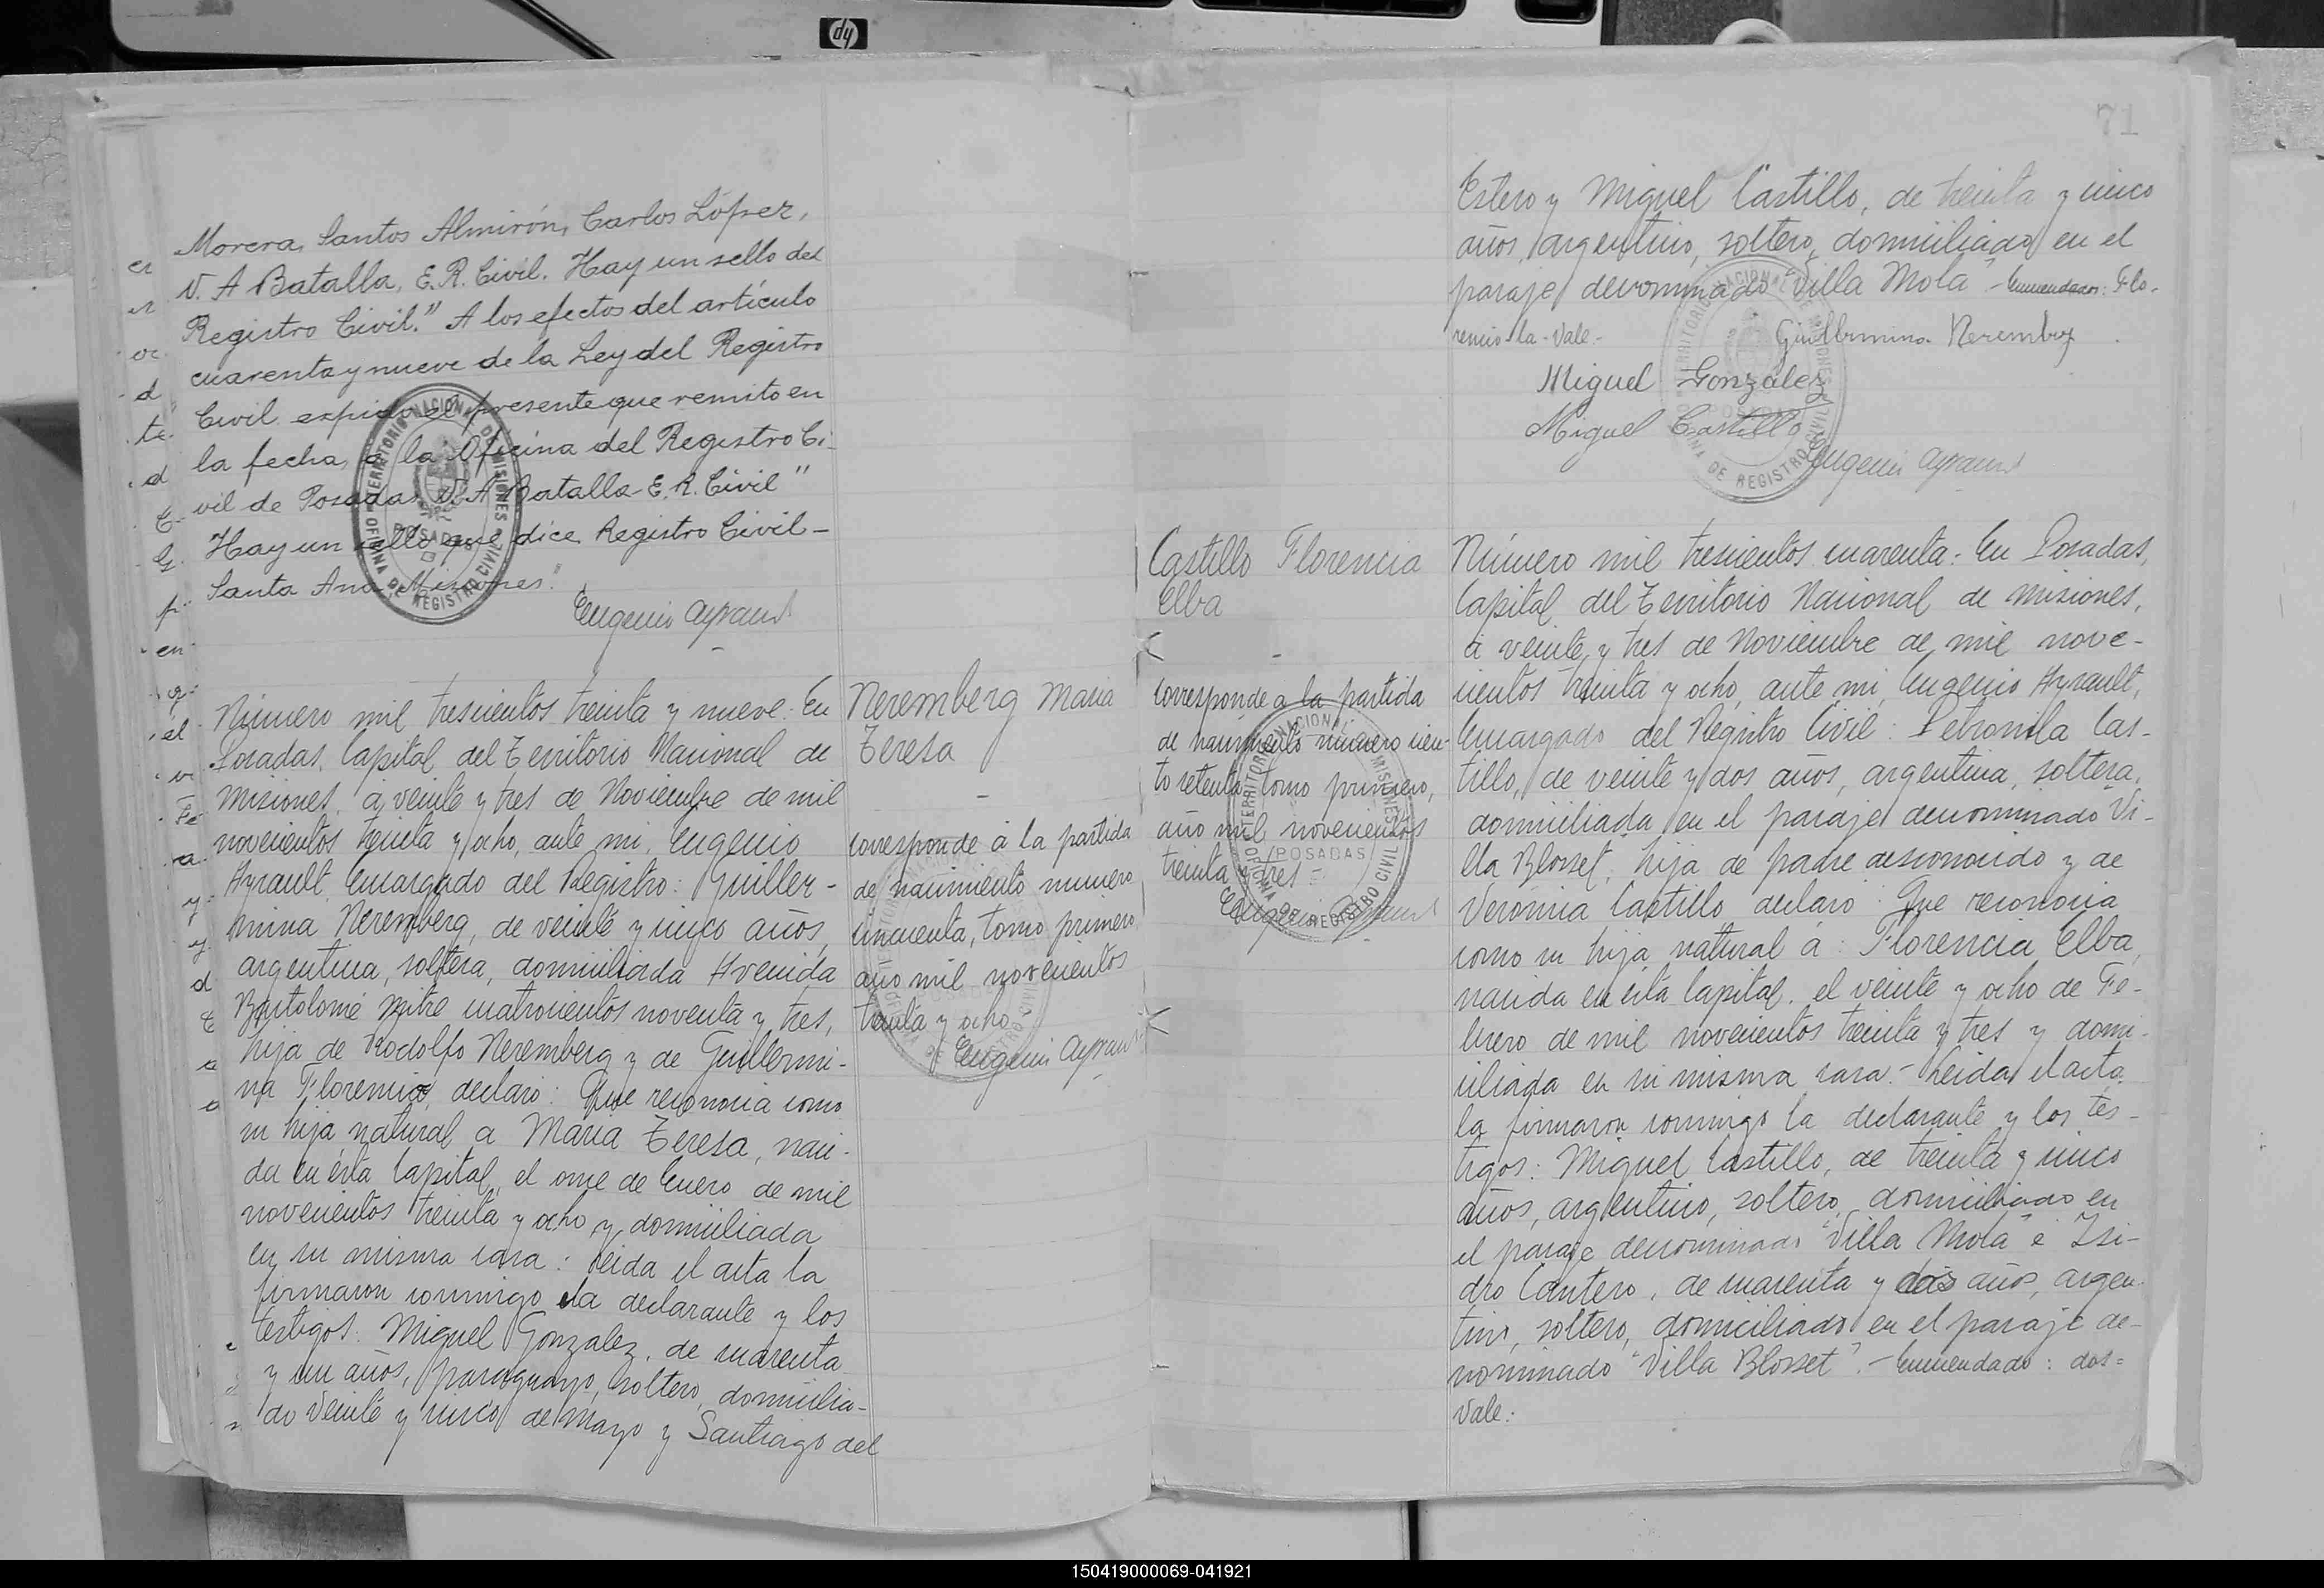 hp
Morera, Santos Almirón, Carlos López,
V. A Batalla, E. R. Civil. Hay un sello del
Registro Civil." A los efectos del artículo
cuarenta y nueve de la Ley del Registro
Civil expido el presente que remito en
la fecha, a la Oficina del Registro Ci-
vil de Posadas. V. A Batalla - E. R. Civil"
Hay un sello que dice Registro Civil -
Santa Ana - Misiones."
Eugenio Ayrault
TERRITORIO NACIONAL DE MISIONES
POSADAS
OFICINA DE REGISTRO CIVIL
Número mil trescientos treinta y nueve: En
Posadas, Capital del Territorio Nacional de
Misiones, á veinte y tres de Noviembre de mil
novecientos treinta y ocho, ante mi, Eugenio
Ayrault, Encargado del Registro: Guiller-
mina Neremberg, de veinte y cinco años,
argentina, soltera, domiciliada Avenida
Bartolomé Mitre cuatrocientos noventa y tres,
hija de Rodolfo Neremberg y de Guillermi-
na Florencio, declaró: Que reconocia como
su hija natural a María Teresa, naci-
da en ésta Capital, el once de Enero de mil
novecientos treinta y ocho y domiciliada
en su misma casa: Leida el acta la
firmaron conmigo la declarante y los
testigos: Miguel Gonzalez, de cuarenta
y un años, paraguayo, soltero, domicilia-
do Veinte y cinco de Mayo y Santiago del
Neremberg Maria
Teresa
corresponde á la partida
de nacimiento número
cincuenta, tomo primero
año mil novecientos
treinta y ocho
Eugenio Ayrault
71
Estero y Miguel Castillo, de treinta y cinco
años, argentino, soltero, domiciliado en el
paraje denominado "Villa Mola" - Enmendados: Flo-
rencio - la - Vale -
Guillermina Neremberg
Miguel Gonzalez
Miguel Castillo
Eugenio Ayrault
TERRITORIO NACIONAL DE MISIONES
OFICINA DE REGISTRO CIVIL
Castillo Florencia
Elba
corresponde a la partida
de nacimiento número cien-
to setenta, tomo primero,
año mil novecientos
treinta y tres -
Eugenio Ayrault
TERRITORIO NACIONAL DE MISIONES
POSADAS
OFICINA DE REGISTRO CIVIL
Número mil trescientos cuarenta: En Posadas,
Capital del Territorio Nacional de Misiones,
á veinte y tres de Noviembre de mil nove-
cientos treinta y ocho, ante mi, Eugenio Ayrault,
Encargado del Registro Civil: Petronila Cas-
tillo, de veinte y dos años, argentina, soltera,
domiciliada en el paraje denominado Vi-
lla Blosset, hija de padre desconocido y de
Verónica Castillo declaró: Que reconocia
como su hija natural á: Florencia Elba,
nacida en ésta Capital, el veinte y ocho de Fe-
brero de mil novecientos treinta y tres y domi-
ciliada en su misma casa - Leida el acta
la firmaron conmigo la declarante y los tes-
tigos: Miguel Castillo, de treinta y cinco
años, argentino, soltero, domiciliado en
el paraje denominado "Villa Mola" é Isi-
dro Cantero, de cuarenta y dos años, argen-
tino, soltero, domiciliado en el paraje de-
nominado "Villa Blosset". - Enmendado: dos =
Vale:
150419000069-041921